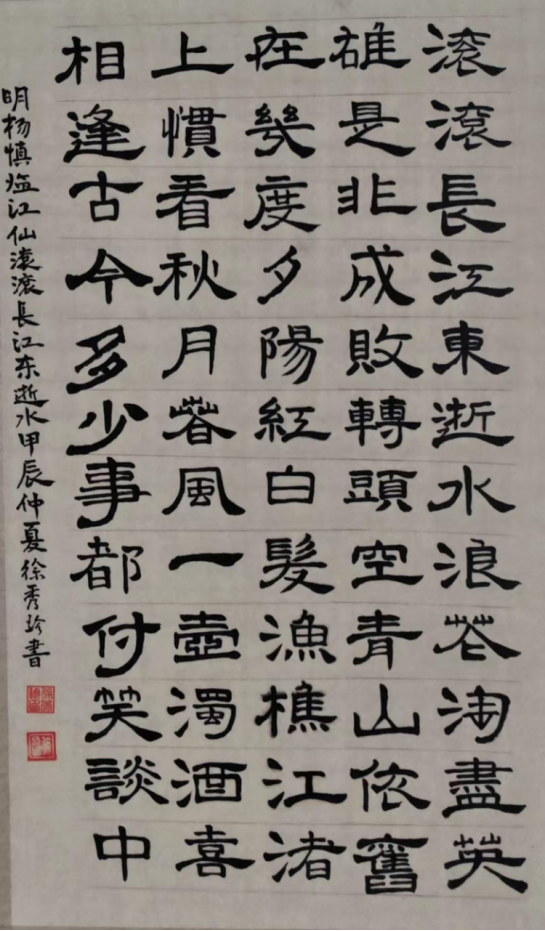 滾滾長江東逝水浪花淘盡英
雄是非成敗轉頭空青山依舊
在幾度夕陽紅白髮漁樵江渚
上慣看秋月春風一壺濁酒喜
相逢古今多少事都付笑談中
明杨慎临江仙滚滚長江东逝水甲辰仲夏徐秀珍書